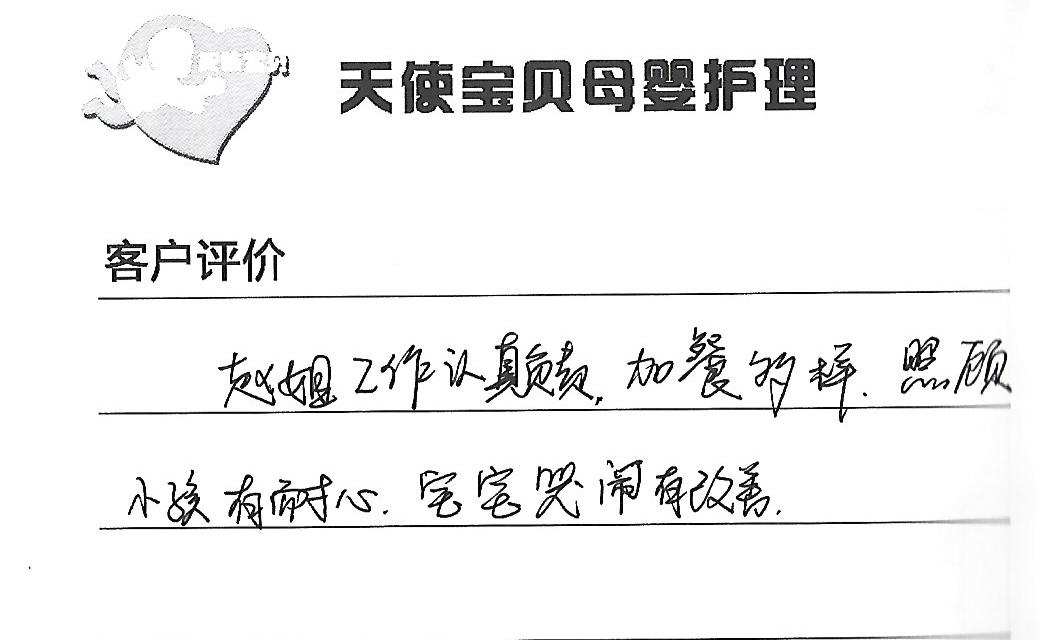 天使宝贝母婴护理
客户评价
赵姐工作认真负责,加餐多样.照顾
小孩有耐心.宝宝哭闹有改善.